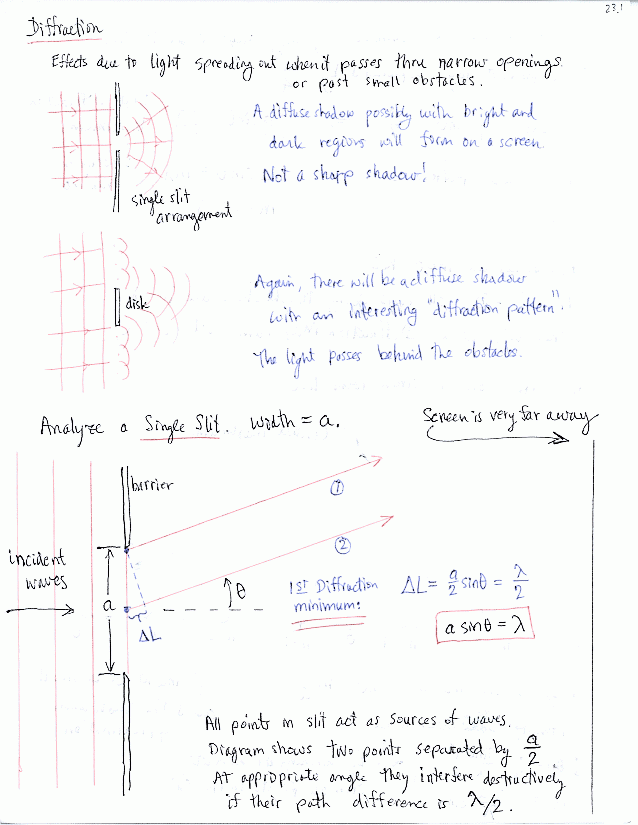 23.1
Diffraction
Effects due to light spreading out when it passes thru narrow openings
or past small obstacles.
A diffuse shadow possibly with bright and
dark regions will form on a screen.
Not a sharp shadow!
single slit
arrangement
disk
Again, there will be a diffuse shadow
with an interesting "diffraction pattern".
The light passes behind the obstacles.
Analyze a Single Slit. Width = a.
Screen is very far away
barrier
①
②
incident
waves
a
θ
ΔL
1ST Diffraction
minimum:
ΔL = a/2 sinθ = λ/2
a sinθ = λ
All points in slit act as sources of waves.
Diagram shows two points separated by a/2
At appropriate angle they interfere destructively
if their path difference is λ/2.